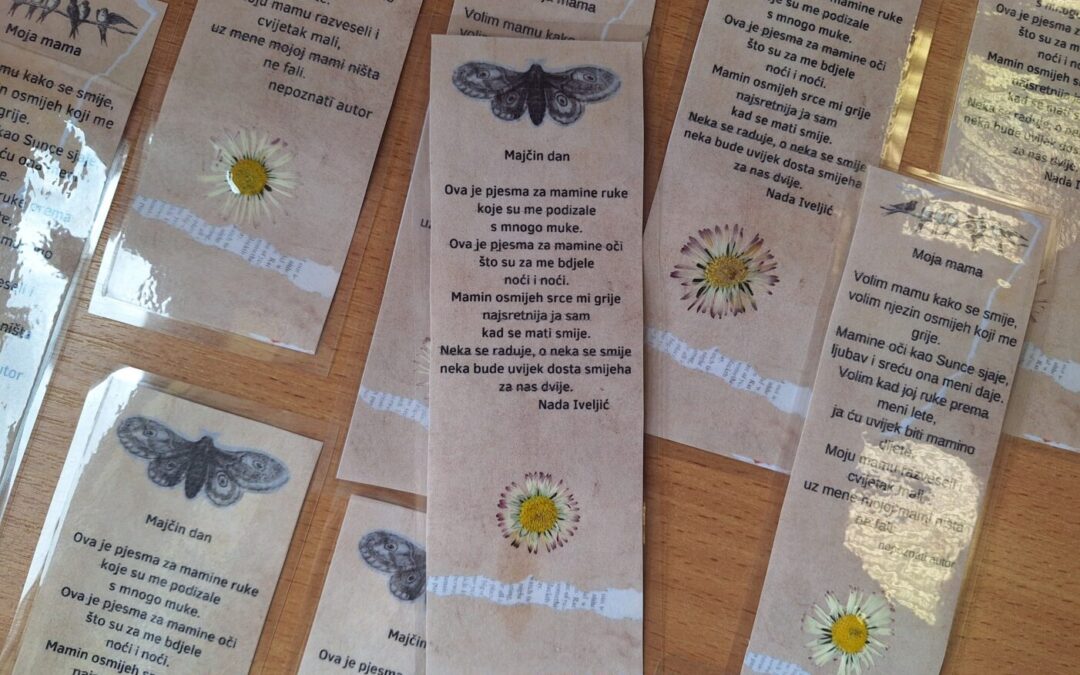 Moja mama
mamu kako se smije,
osmijeh koji me
grije.
kao Sunce sjaje,
sreću ona meni
ruke prema
autor
mamu razveseli i
cvijetak mali,
uz mene mojoj mami ništa
ne fali.
nepoznati autor
mama
Volim mamu kako se
Majčin dan
Ova je pjesma za mamine ruke
koje su me podizale
s mnogo muke.
Ova je pjesma za mamine oči
što su za me bdjele
noći i noći.
Mamin osmijeh srce mi grije
najsretnija ja sam
kad se mati smije.
Neka se raduje, o neka se smije
neka bude uvijek dosta smijeha
za nas dvije.
Nada Iveljić
Ova je pjesma za mamine ruke
koje su me podizale
s mnogo muke.
Ova je pjesma za mamine oči
što su za me bdjele
noći i noći.
Mamin osmijeh srce mi grije
najsretnija ja sam
kad se mati smije.
Neka se raduje, o neka se smije
neka bude uvijek dosta smijeha
za nas dvije.
Nada Iveljić
s mnogo
Ova je pjesma za
što su za me
noći i noći.
Mamin osmijeh
najsretnija
kad se mati
Neka se raduje
neka bude uvijek
za nas
Nada
Moja mama
Volim mamu kako se smije,
volim njezin osmijeh koji me
grije.
Mamine oči kao Sunce sjaje,
ljubav i sreću ona meni daje.
Volim kad joj ruke prema
meni lete,
ja ću uvijek biti mamino
dijete.
Moju mamu razveseli
cvijetak mali,
uz mene mojoj mami ništa
ne fali.
nepoznati autor
Majčin dan
Ova je pjesma za mamine ruke
koje su me podizale
s mnogo muke.
Ova je pjesma za mamine oči
što su za me bdjele
noći i noći.
Mamin osmijeh srce mi
Ova je pjesma